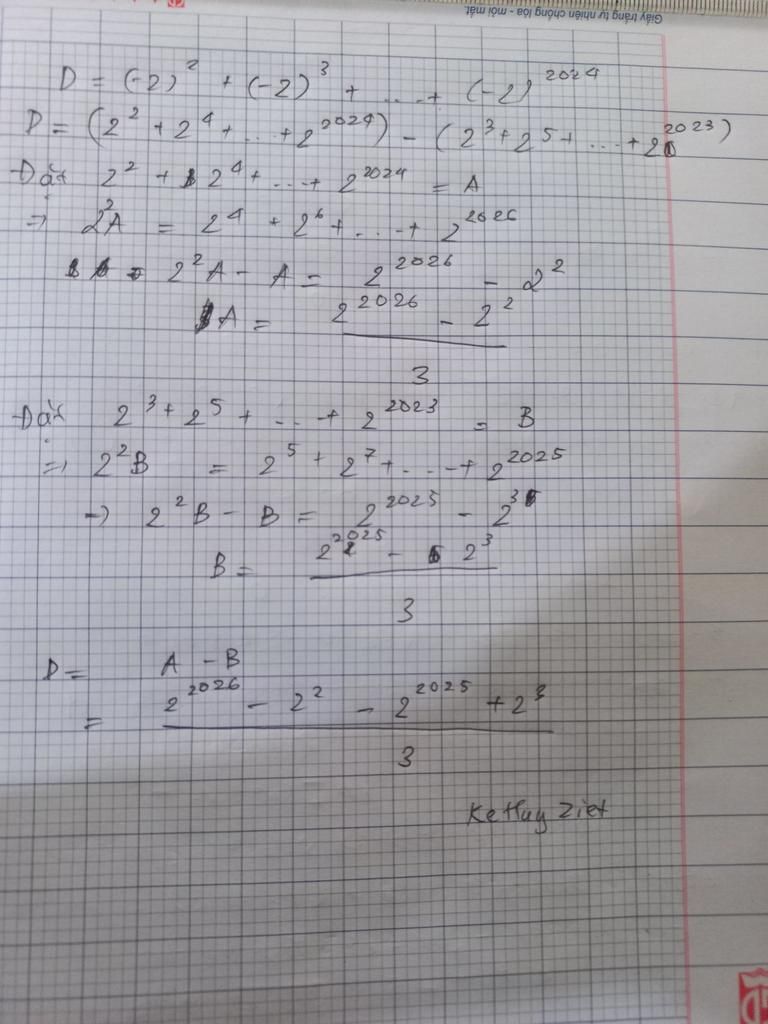 Giấy trắng tự nhiên chống lóa - mỏi mắt
D = (-2)² + (-2)³ + ... + (-2)²⁰²⁴
D = (2² + 2⁴ + ... + 2²⁰²⁴) - (2³ + 2⁵ + ... + 2²⁰²³)
Đặt 2² + 2⁴ + ... + 2²⁰²⁴ = A
⇒ 2²A = 2⁴ + 2⁶ + ... + 2²⁰²⁶
2²A - A = 2²⁰²⁶ - 2²
A = (2²⁰²⁶ - 2²) / 3
Đặt 2³ + 2⁵ + ... + 2²⁰²³ = B
⇒ 2²B = 2⁵ + 2⁷ + ... + 2²⁰²⁵
→ 2²B - B = 2²⁰²⁵ - 2³
B = (2²⁰²⁵ - 2³) / 3
D = A - B
= (2²⁰²⁶ - 2² - 2²⁰²⁵ + 2³) / 3